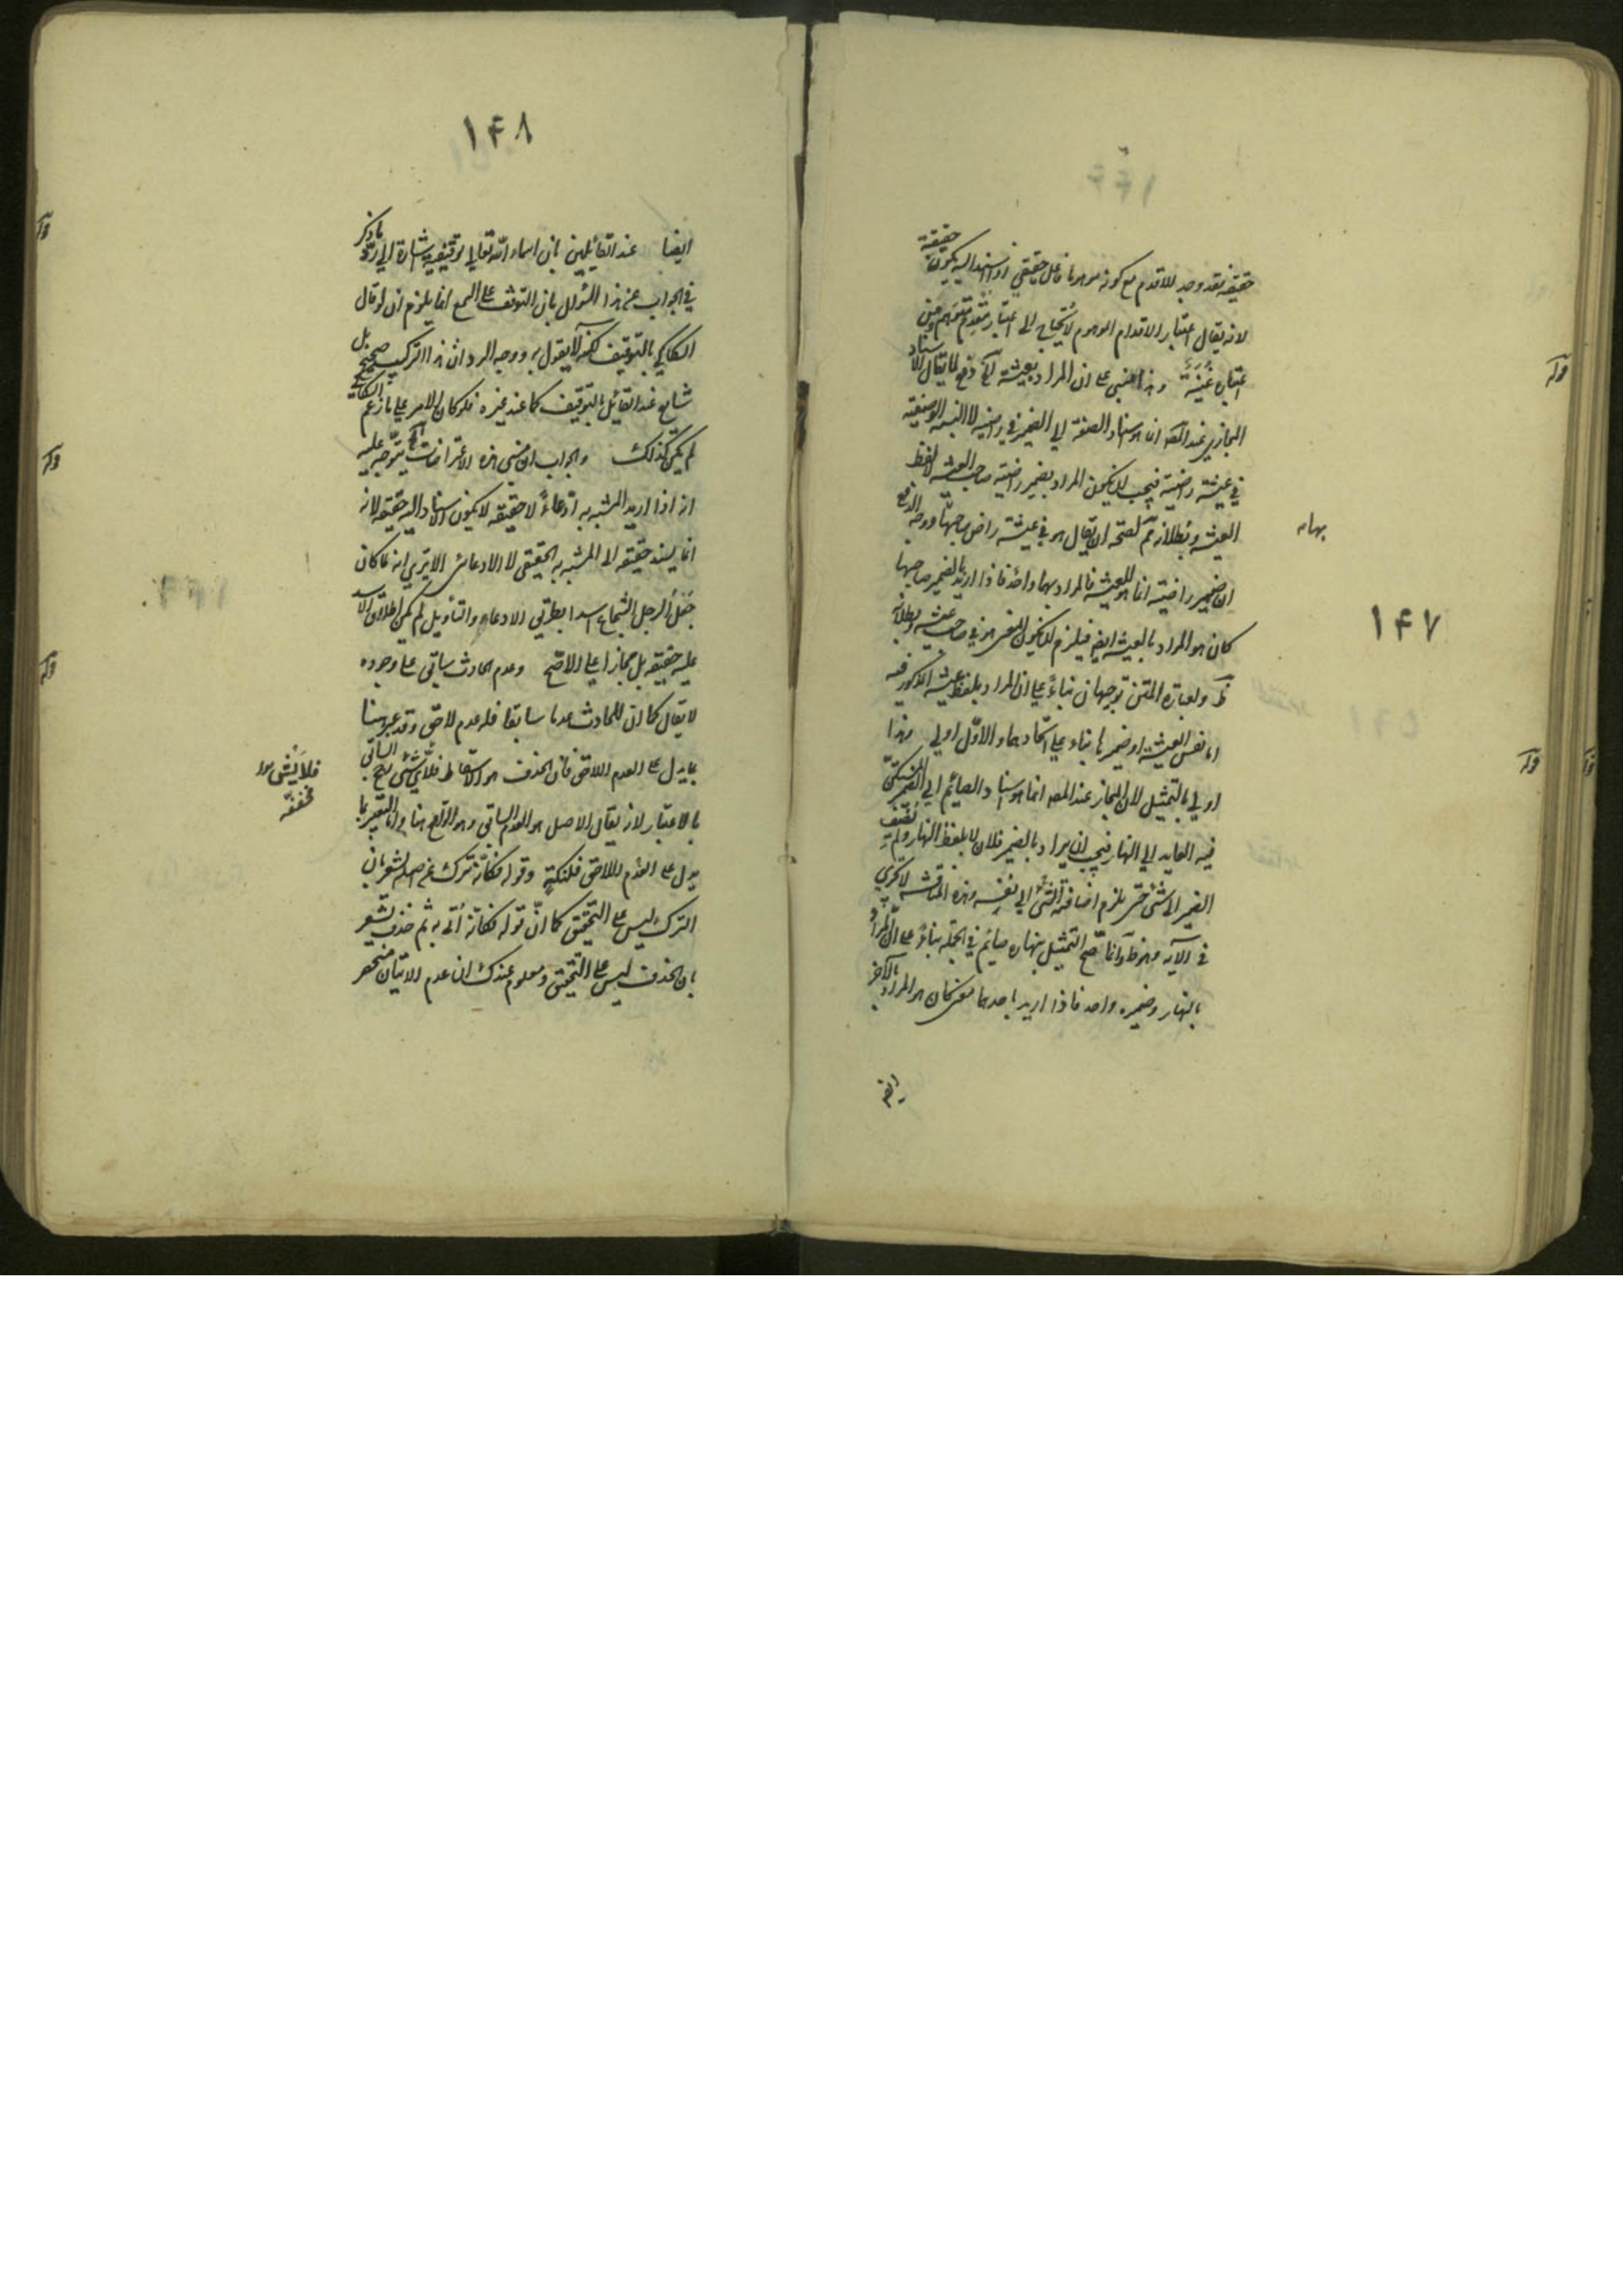 ١۴٧
حقيقة فقد وجد للاقدم مع كونه موهوما فاعل حقيقي اذا اسند اليه يكون حقيقة
لانه يقال اعتبار الاقدام الموهوم لا يحتاج الى اعتبار مقدم متوهم
اعتباره وهذا مبني على ان المراد بعيشة دفع لما يقال الاسناد
المجازي عند المص انما هو اسناد الصفة الى الضمير في راضية لا النسبة الوصفية
في عيشة راضية فيجب ان يكون المراد بضمير راضية صاحب العيشة لا لفظ
العيشة وبطلانه ثم لصحة ان يقال هو في عيشة راض صاحبها ووجه الدفع
ان ضمير راضية انما هو للعيشة فالمراد بهما واحد فاذا اريد بالضمير صاحبها
كان هو المراد بالعيشة ايضا فيلزم ان يكون المعنى هو في صاحب عيشة وبطلانه
ظ ولعبارة المتن توجيهان بناء على ان المراد بلفظ عيشة المذكور فيه
اما نفس العيشة او ضميرها بناء على اتحادهما والاول اولى وهذا
اولى بالتمثيل لان المجاز عند المص انما هو اسناد الصائم الى الضمير المستكن
فيه العايد الى النهار فيجب ان يراد بالضمير فلان لا بلفظ النهار ولم يضف
الضمير الى شئ حتى يلزم اضافة الشئ الى نفسه وهذه المناقشة لا تجري
في الآية وهو ظ وانما صح التمثيل بنهاره صائم في الجملة بناء على ان المراد
بالنهار وضميره واحد فاذا اريد باحدهما معنى كان هو المراد بالآخر
ايضا
بهامه
قوله
قوله
١۴٨
ايضا عند القائلين بان اسماء الله تعالى توقيفية اشارة الى رد ما ذكر
في الجواب عن هذا السؤال بان التوقف على السمع انما يلزم ان لو قال
السكاكي بالتوقيف لكنه لا يقول به ووجه الرد ان هذا التركيب صحيح بل
شايع عند القائل بالتوقيف كما عند غيره فلو كان الامر على ما زعم السكاكي
لم يكن كذلك والجواب ان مبنى هذه الاعتراضات الخ يتوجه عليه
انه اذا اريد المشبه به ادعاءً لا حقيقة لا يكون الاسناد اليه حقيقة لانه
انما يسند حقيقة الى المشبه به الحقيقي لا الادعائي الا يرى انه لما كان
جعل الرجل الشجاع اسدا بطريق الادعاء والتأويل لم يكن اطلاق الاسد
عليه حقيقة بل مجازا على الاصح وعدم الحادث سابق على وجوده
لا يقال كما ان للحادث عدما سابقا فله عدم لاحق وقد عبر هنا
بما يدل على العدم اللاحق فان الحذف هو الاسقاط فلاي شئ رجح السابق
بالاعتبار لانه يقال الاصل هو العدم السابق وهو الواقع هنا واما التعبير بما
يدل على العدم اللاحق فلنكتة وقوله فكانه ترك عن اصله يشعر بان
الترك ليس على التحقيق كما ان قوله فكانه أتى به ثم حذف يشعر
بان الحذف ليس على التحقيق ومعلوم عندك ان عدم الاتيان منحصر
مخففة
قوله
قوله
قوله